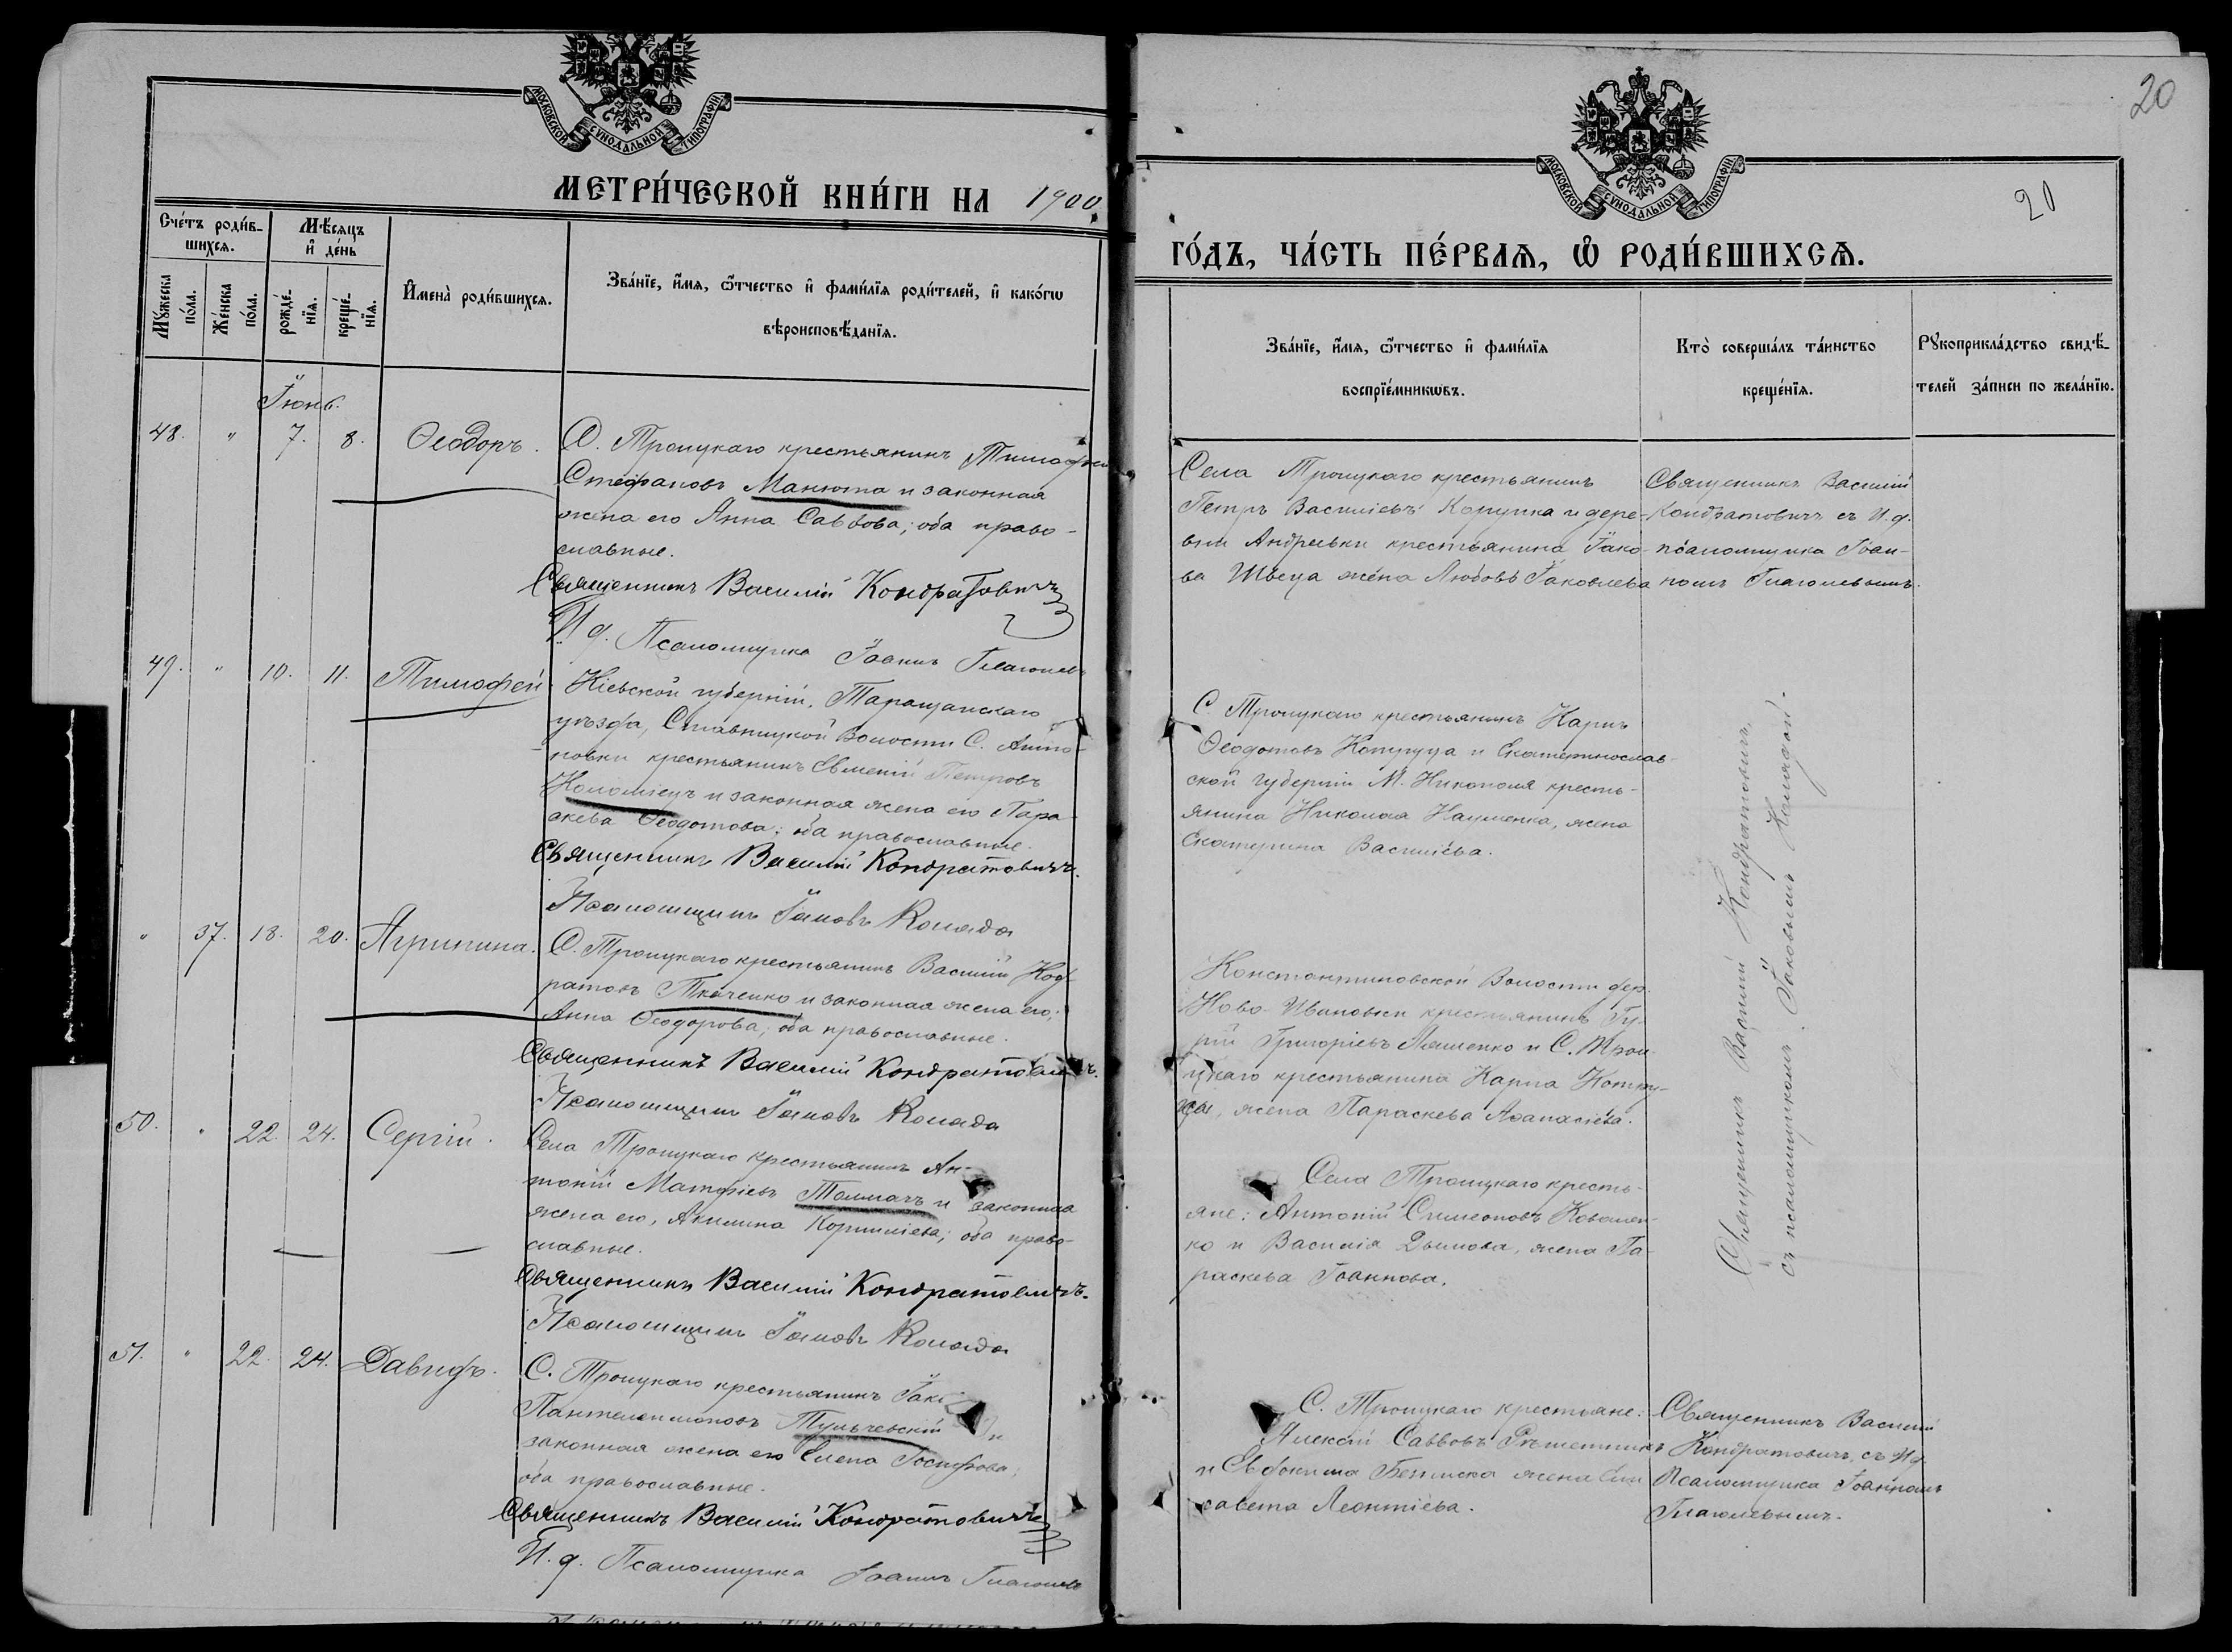 20
МОСКОВСКОЙ СУНОДАЛЬНОЙ ТИПОГРАФІИ
МЕТРИ́ЧЕСКОЙ КНИ́ГИ НА 1900
Сче́тъ роди́в-
шихсѧ.
Мѣ́сѧцъ
и҆ де́нь
Мꙋ́жеска
по́ла.
Же́нска
по́ла.
рожде́-
нїѧ.
креще́-
нїѧ.
И҆мена̀ роди́вшихсѧ.
Зва́нїе, и҆́мѧ, ѻ҆́тчество и҆ фами́лїѧ роди́телей, и҆ како́гѡ
вѣроисповѣ́данїѧ.
Іюнь.
48. " 7. 8. Ѳеодоръ.
С. Троицкаго крестьянинъ Тимофей
Стефановъ Манюта и законная
жена его Анна Саввова; оба право-
славные.
Священникъ Василій Кондратовичъ
И. д. Псаломщика Іоаннъ Глаголевъ
49. " 10. 11. Тимофей
Кіевской губерніи, Таращанскаго
уѣзда, Ставищкой Волости С. Анто-
новки крестьянинъ Евменій Петровъ
Коломіецъ и законная жена его Пара-
скева Ѳеодотова; оба православные.
Священникъ Василій Кондратовичъ.
Псаломщикъ Іаковъ Коляда
" 37. 18. 20. Агрипина.
С. Троицкаго крестьянинъ Василій Код-
ратовъ Ткаченко и законная жена его,
Анна Ѳеодорова; оба православные.
Священникъ Василій Кондратовичъ.
Псаломщикъ Іаковъ Коляда
50. " 22. 24. Сергій.
Села Троицкаго крестьянинъ Ан-
тоній Матфіевъ Толмачъ и законная
жена его, Акилина Корнилієва; оба право-
славные.
Священникъ Василій Кондратовичъ.
Псаломщикъ Іаковъ Коляда
51. " 22. 24. Давидъ.
С. Троицкаго крестьянинъ
Пантелеимоновъ Тульчевскій и
законная жена его Елена Іосифова;
оба православные.
Священникъ Василій Кондратовичъ
И. д. Псаломщика Іоаннъ Глаголевъ
20
МОСКОВСКОЙ СУНОДАЛЬНОЙ ТИПОГРАФІИ
ГО́ДЪ, ЧА́СТЬ ПЕ́РВАѦ, Ѡ҆ РОДИ́ВШИХСѦ.
Зва́нїе, и҆́мѧ, ѻ҆́тчество и҆ фами́лїѧ
воспрїе́мникѡвъ.
Кто̀ соверша́лъ та́инство
креще́нїѧ.
Рꙋкоприкла́дство свидѣ́-
телей за́писи по жела́нїю.
Села Троицкаго крестьянинъ
Петръ Василіевъ Корупка и дере-
вни Андреевки крестьянина Іако-
ва Швеца жена Любовь Іаковлева
Священникъ Василій
Кондратовичъ съ И. д.
псаломщика Іоан-
номъ Глаголевымъ.
С. Троицкаго крестьянинъ Карпъ
Ѳеодотовъ Котруца и Екатеринослав-
ской губерніи М. Никополя кресть-
янина Николая Науменка, жена
Екатерина Василіева.
Константиновской Волости дер.
Ново-Ивановки крестьянинъ Гу-
рій Григоріевъ Ляшенко и С. Трои-
цкаго крестьянина Карпа Котру-
цы, жена Параскева Аѳанасіева.
Села Троицкаго кресть-
яне: Антоній Симеоновъ Ковален-
ко и Василія Дымова, жена Па-
раскева Іоаннова.
Священникъ Василій Кондратовичъ,
съ псаломщикомъ Іаковымъ Колядой.
С. Троицкаго крестьяне:
Алексій Саввовъ Рѣшетникъ
и Евфокима жена Ели-
савета Леонтіева.
Священникъ Василій
Кондратовичъ, съ И. д.
Псаломщика Іоанномъ
Глаголевымъ.